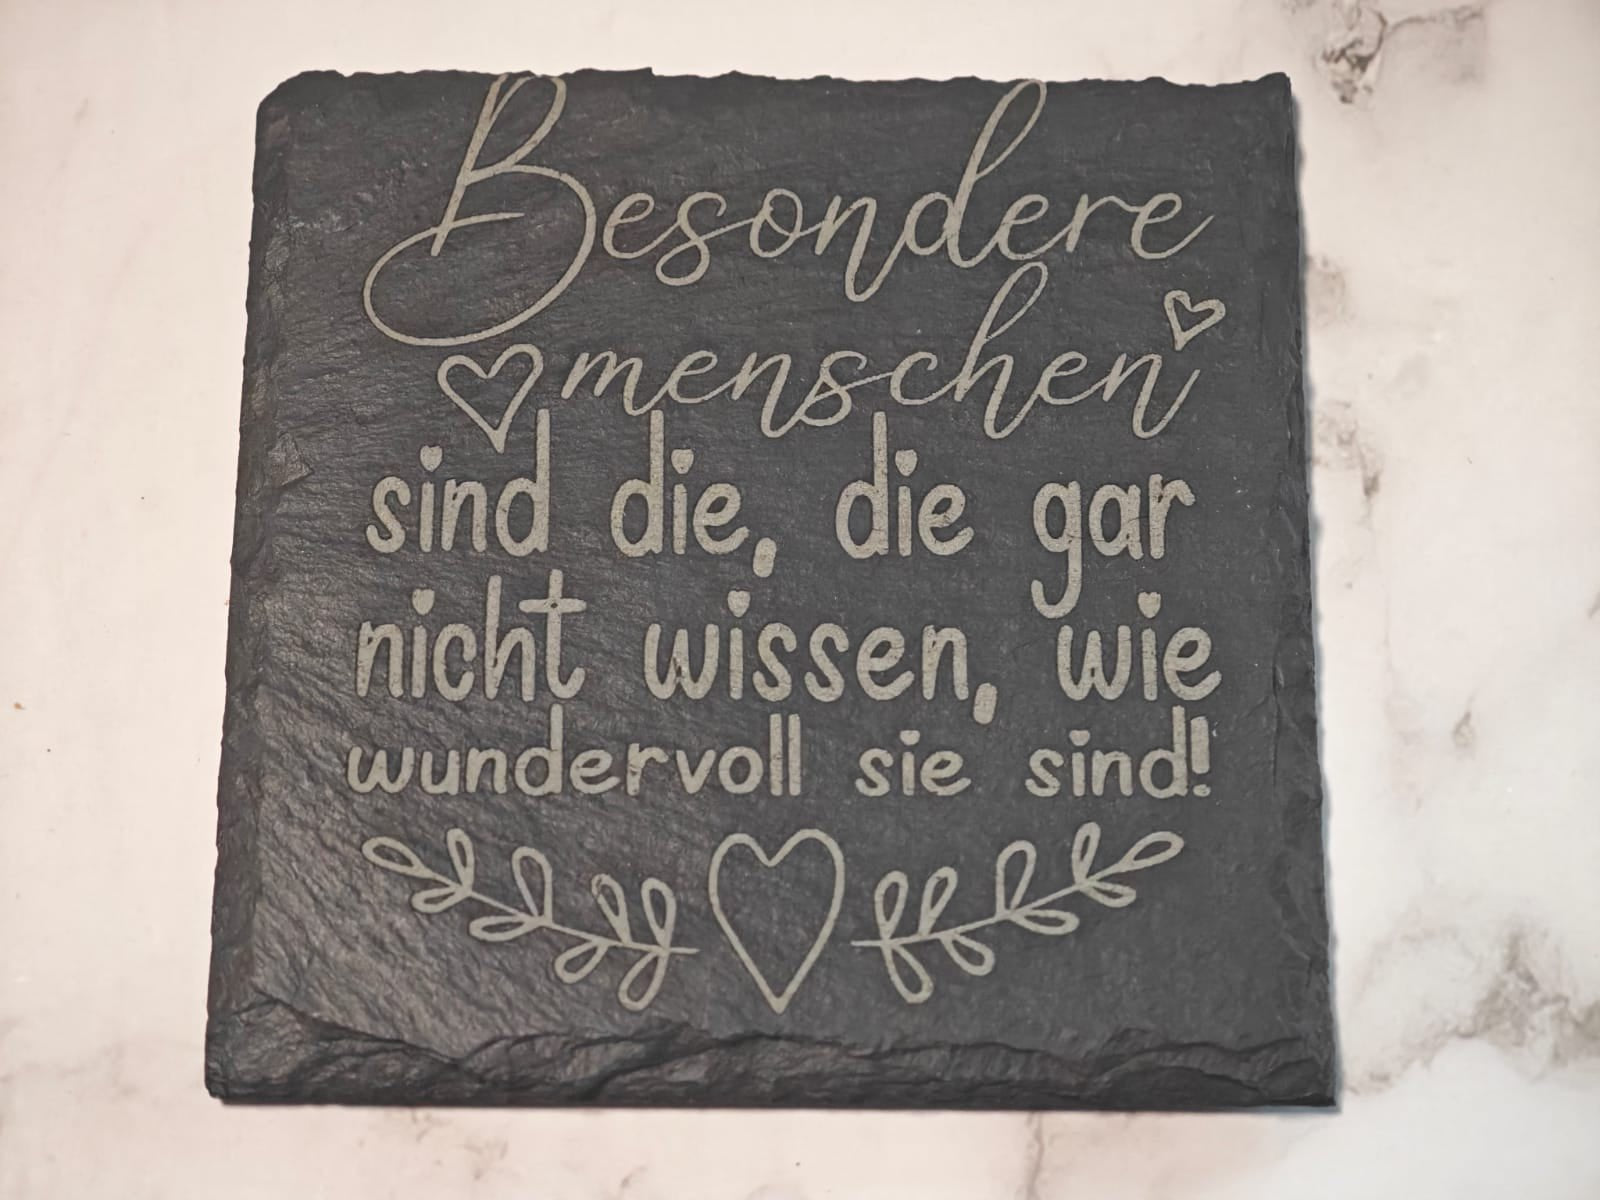 Besondere
menschen
sind die, die gar
nicht wissen, wie
wundervoll sie sind!